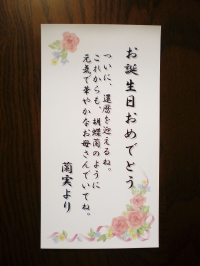 お誕生日おめでとう
ついに、還暦を迎えるね。
これからも、胡蝶蘭のように
元気で華やかなお母さんでいてね。
蘭実より